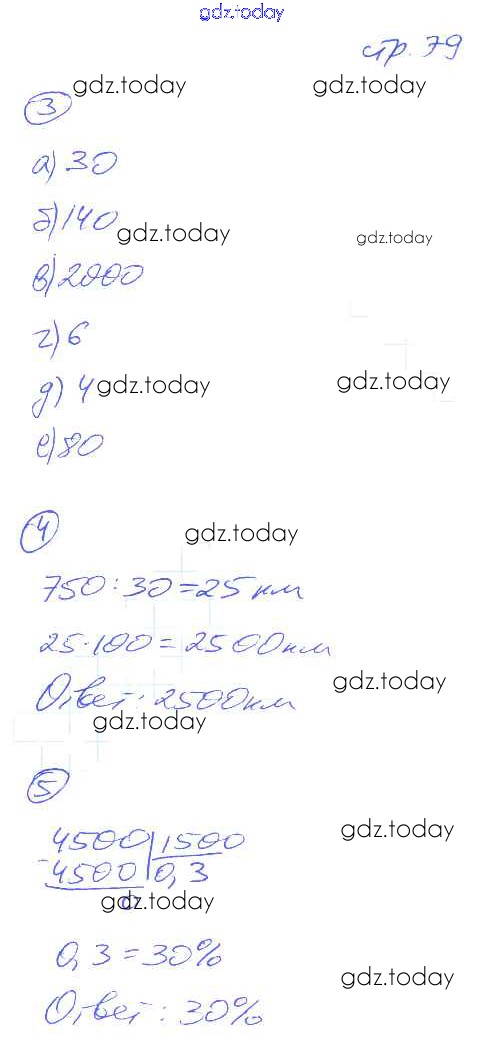 gdz.today
стр. 79
gdz.today gdz.today
3
а) 30
б) 140
gdz.today gdz.today
в) 2000
г) 6
д) 4 gdz.today gdz.today
е) 80
4 gdz.today
750 : 30 = 25 км
25 · 100 = 2500 км
gdz.today
Ответ: 2500 км
gdz.today
5
gdz.today
4500 | 1500
- 4500 | 0,3
0 gdz.today
0,3 = 30%
gdz.today
Ответ: 30%